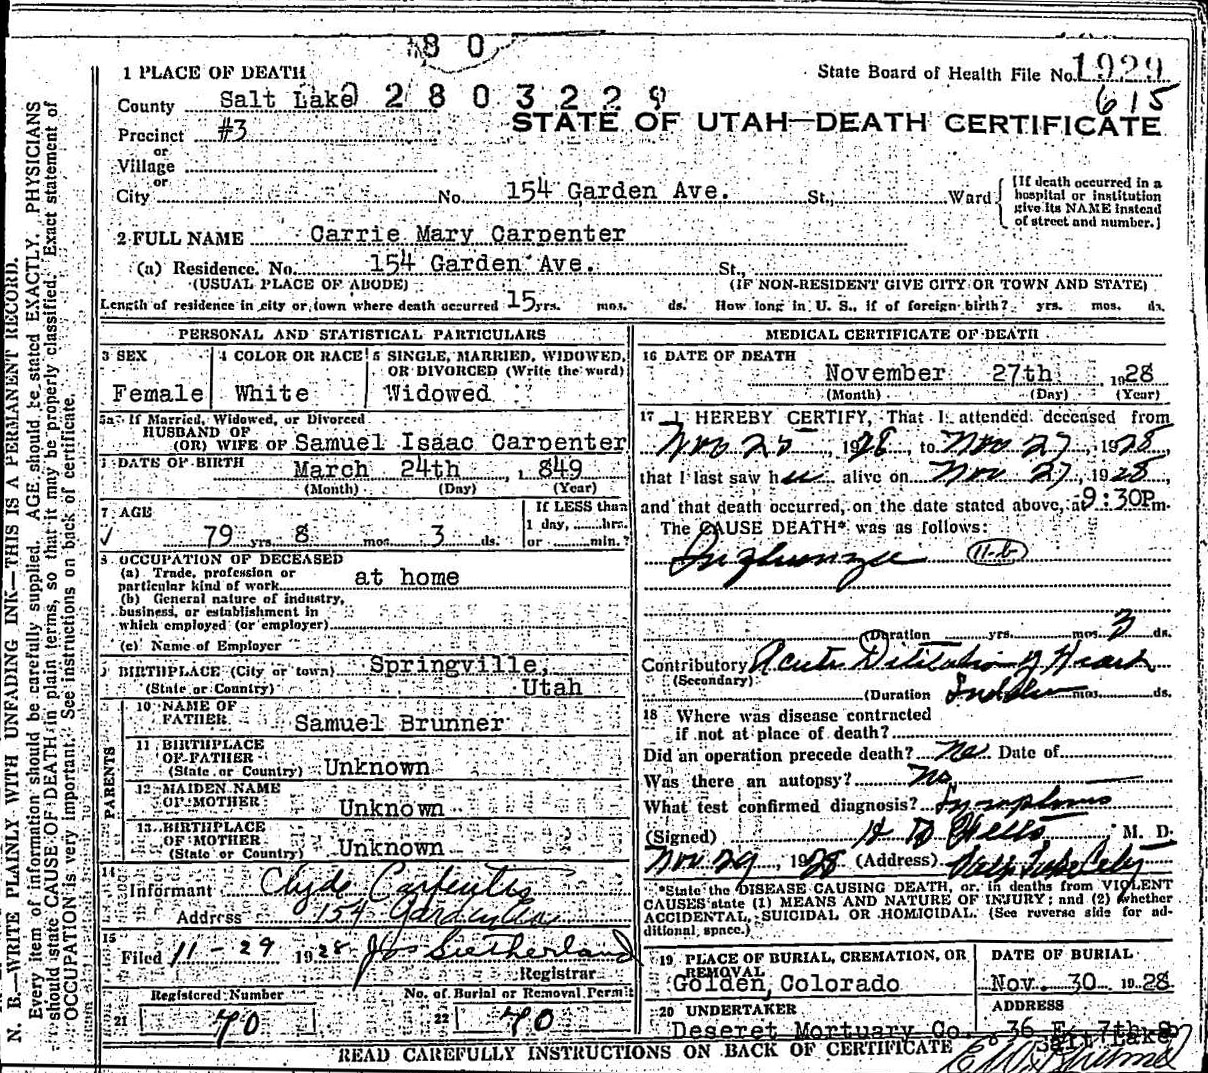 80
1 PLACE OF DEATH
State Board of Health File No. 1929
County Salt Lake 02803228
615
STATE OF UTAH—DEATH CERTIFICATE
Precinct #3
or
Village
or
City No. 154 Garden Ave. St., Ward
[If death occurred in a hospital or institution give its NAME instead of street and number.]
2 FULL NAME Carrie Mary Carpenter
(a) Residence. No. 154 Garden Ave. St.,
(USUAL PLACE OF ABODE) (IF NON-RESIDENT GIVE CITY OR TOWN AND STATE)
Length of residence in city or town where death occurred 15 yrs. mos. ds. How long in U. S., if of foreign birth? yrs. mos. ds.
PERSONAL AND STATISTICAL PARTICULARS
3 SEX
Female
4 COLOR OR RACE
White
5 SINGLE, MARRIED, WIDOWED,
OR DIVORCED (Write the word)
Widowed
5a If Married, Widowed, or Divorced
HUSBAND OF
(OR) WIFE OF Samuel Isaac Carpenter
DATE OF BIRTH
March 24th, 1849
(Month) (Day) (Year)
7 AGE
79 yrs. 8 mos. 3 ds.
If LESS than
1 day, hrs.
or min.?
8 OCCUPATION OF DECEASED
(a) Trade, profession or
particular kind of work at home
(b) General nature of industry,
business, or establishment in
which employed (or employer)
(c) Name of Employer
9 BIRTHPLACE (City or town) Springville,
(State or Country) Utah
PARENTS
10 NAME OF
FATHER Samuel Brunner
11 BIRTHPLACE
OF FATHER
(State or Country) Unknown
12 MAIDEN NAME
OF MOTHER Unknown
13 BIRTHPLACE
OF MOTHER
(State or Country) Unknown
14
Informant Clyde Carpenter
Address 154 Garden Ave
15
Filed 11-29 1928 Jos Sutherland
Registrar
Registered Number
21 70
No. of Burial or Removal Permit
22 70
MEDICAL CERTIFICATE OF DEATH
16 DATE OF DEATH
November 27th, 1928
(Month) (Day) (Year)
17 I HEREBY CERTIFY, That I attended deceased from
Nov 25, 1928 to Nov 27, 1928,
that I last saw her alive on Nov 27, 1928,
and that death occurred, on the date stated above, at 9:30P m.
The CAUSE DEATH* was as follows:
Influenza 11-b
(Duration yrs. mos. 3 ds.
Contributory Acute Dilitation of Heart
(Secondary)
(Duration Sudden mos. ds.
18 Where was disease contracted
if not at place of death?
Did an operation precede death? No Date of
Was there an autopsy? No
What test confirmed diagnosis? Symptoms
(Signed) M. D.
Nov 29, 1928 (Address) Salt Lake City
*State the DISEASE CAUSING DEATH, or in deaths from VIOLENT
CAUSES state (1) MEANS AND NATURE OF INJURY; and (2) whether
ACCIDENTAL, SUICIDAL OR HOMICIDAL. (See reverse side for ad-
ditional space.)
19 PLACE OF BURIAL, CREMATION, OR
REMOVAL
Golden, Colorado
DATE OF BURIAL
Nov. 30 1928
20 UNDERTAKER
Deseret Mortuary Co.
ADDRESS
36 E. 7th So
Salt Lake
READ CAREFULLY INSTRUCTIONS ON BACK OF CERTIFICATE
N. B.—WRITE PLAINLY WITH UNFADING INK—THIS IS A PERMANENT RECORD.
Every item of information should be carefully supplied. AGE should be stated EXACTLY. PHYSICIANS
should state CAUSE OF DEATH in plain terms, so that it may be properly classified. Exact statement of
OCCUPATION is very important. See instructions on back of certificate.